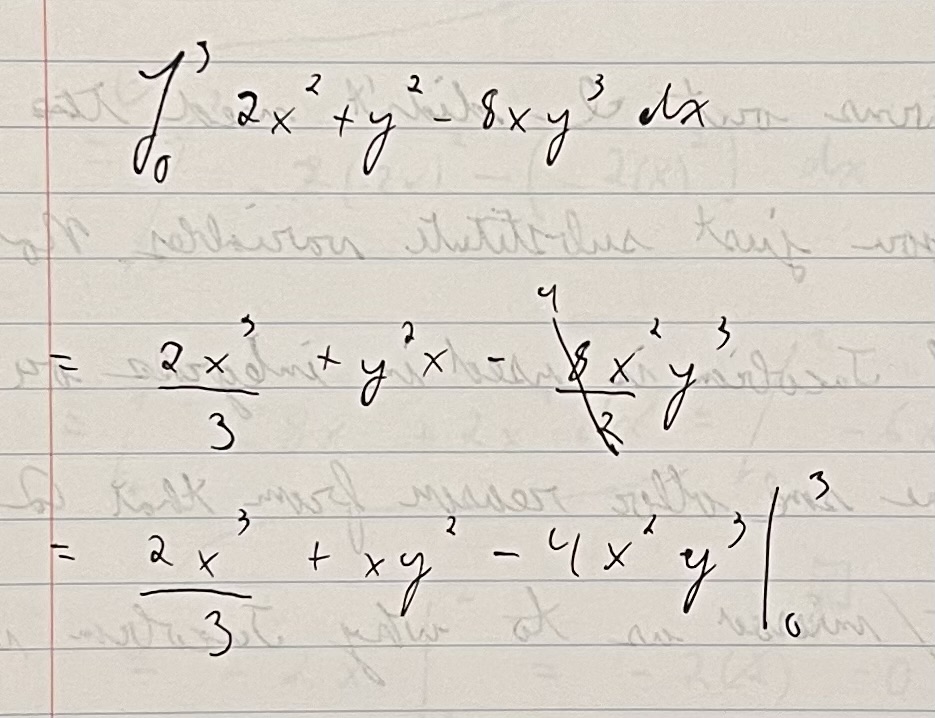 ∫₀³ 2x² + y² - 8xy³ dx
= 2x³/3 + y²x - 8x²/2 y³ 4
= 2x³/3 + xy² - 4x²y³ |₀³